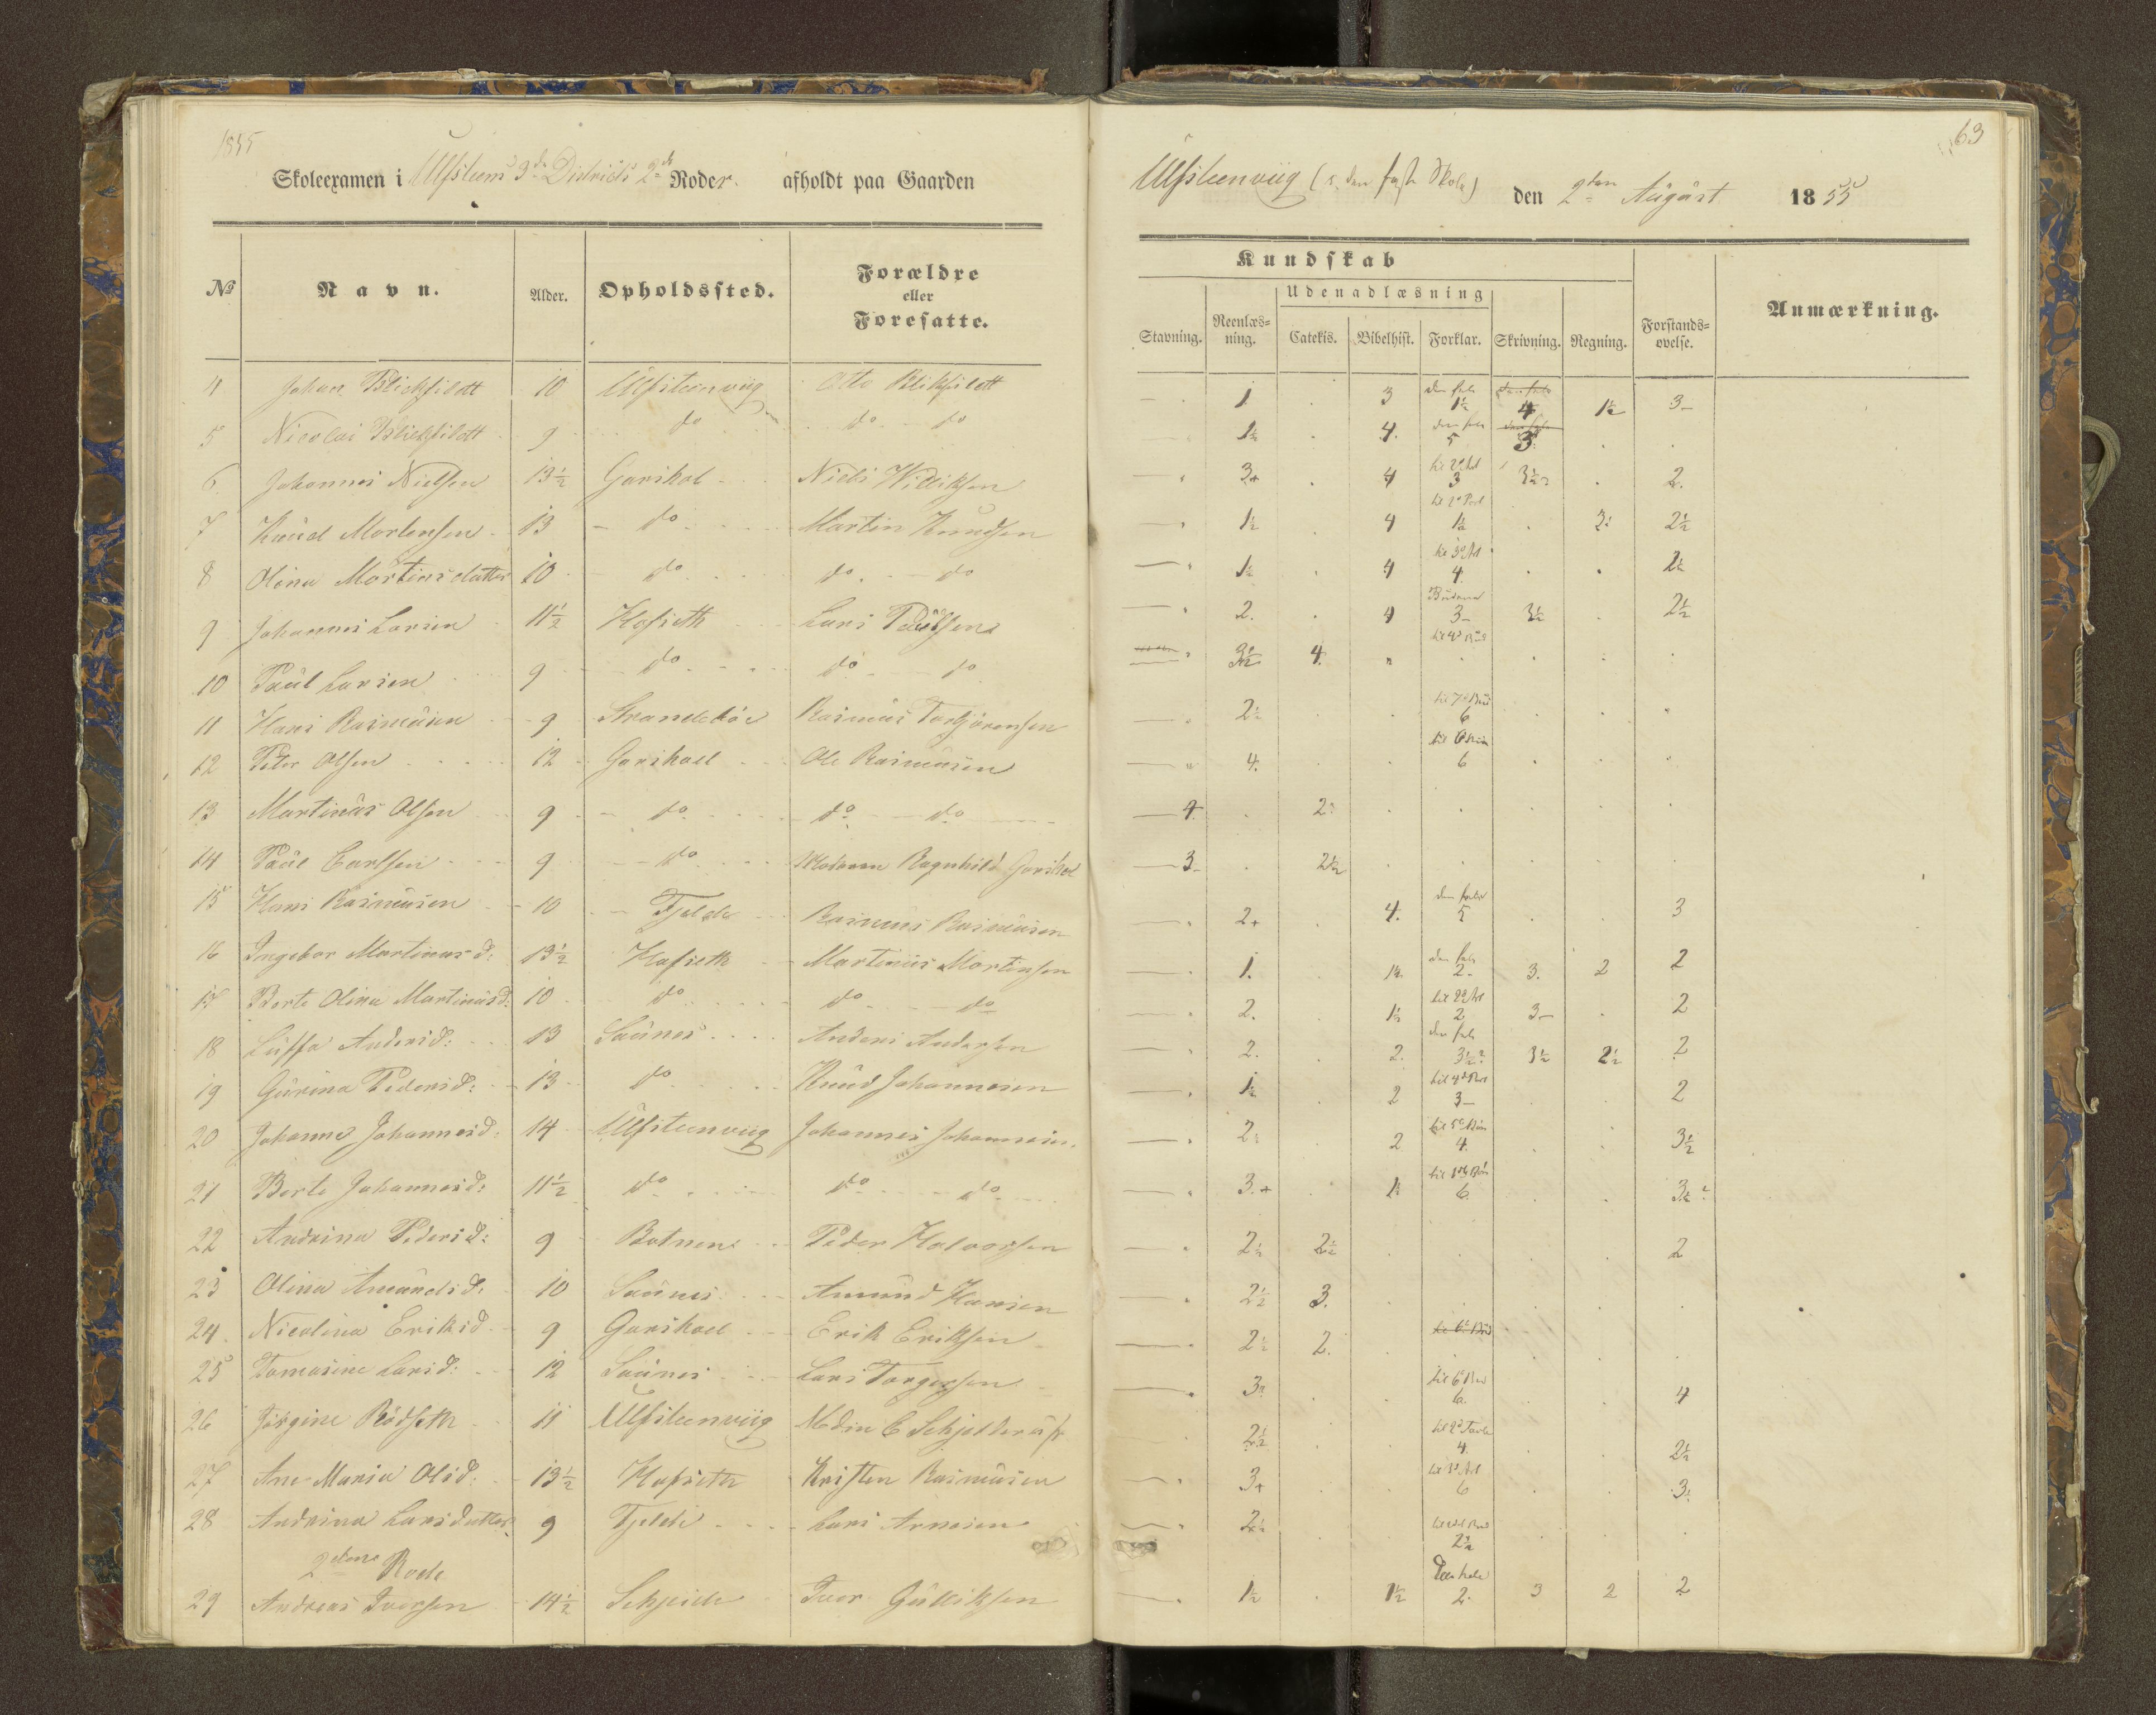 1855
Skoleexamen i Ulfsteens 3d Districts 2d Roder. afholdt paa Gaarden
№ Navn. Alder. Opholdssted. Forældre eller Foresatte.
4 Johan Blichfildt 10 Ulfsteenviig Otto Blikfildt
5 Nicolai Blichfildt 9 do do do
6 Johannes Nielsen 13½ Garshol Niels Williksen
7 Knud Mortensen 13 do Martin Knudsen
8 Olina Martinsdatter 10 do do do
9 Johannes Larsen 11½ Hofseth Lars Paulsen
10 Paul Larsen 9 do do do
11 Hans Rasmusen 9 Strandeböe Rasmus Torbjörensen
12 Peter Olsen 12 Garshoel Ole Rasmusen
13 Martinus Olsen 9 do do do
14 Paul Carlsen 9 do Madame Ragnhild Garshol
15 Hans Rasmusen 10 Fjelde Rasmus Rasmusen
16 Ingebor Martinusd: 13½ Hofseth Martinus Mortensen
17 Berte Olina Martinusd: 10 do do do
18 Luffa Andersd: 13 Saunes Anders Andersen
19 Gurina Pedersd: 13 do Knud Johannesen
20 Johanne Johannesd: 14 Ulfsteenviig Johannes Johannesen.
21 Berte Johannesd: 11½ do do do
22 Andrina Pedersd: 9 Botnen Peder Halvorsen
23 Olina Amundsd: 10 Saunes Amund Hansen
24 Nicolina Eriksd 9 Garshoel Erik Eriksen
25 Tomasine Larsd: 12 Saunes Lars Torgersen
26 Jörgine Rödseth 11 Ulfsteenviig Mdm C Schjelderup
27 Ane Maria Olsd: 13½ Hofseth Kristen Rasmusen
28 Andrina Larsdatter 9 Fjelde Lars Arnesen
2den Rode
29 Andreas Iversen 14½ Schjeide Iver Gulliksen
63
Ulfsteenviig (i den faste Skole) den 2den August 1855
Kundskab
Udenadlæsning
Stavning. Reenlæsning. Catekis. Bibelhist. Forklar. Skrivning. Regning. Forstandsøvelse. Anmærkning.
1 3 den hele 1½ 4 1½ 3-
1½ 4. den hele 5 3
3+ 4 til 2d Art 3 3½ 2.
1½ 4 1½ 2½
1½ 4 til 3d Art 4
2. 4 3- 3½ 2½
4.
6
4. 6
4. 2
3-
2+ 4. den hele 5 3
1. 1½ den hele 2- 3. 2 2
2. 1½ til 2d Art 2 3- 2
2. 2. den hele 3½ 3½ 2½ 2
1½ 2 3- 2
2 4. 3½
3.+ 6
2½ 2½ 2
2½ 3.
2½ 2.
6 4
2½ 4. 2½
3+ 6 3
2½
1½ 1½ Den hele 2. 3 2 2